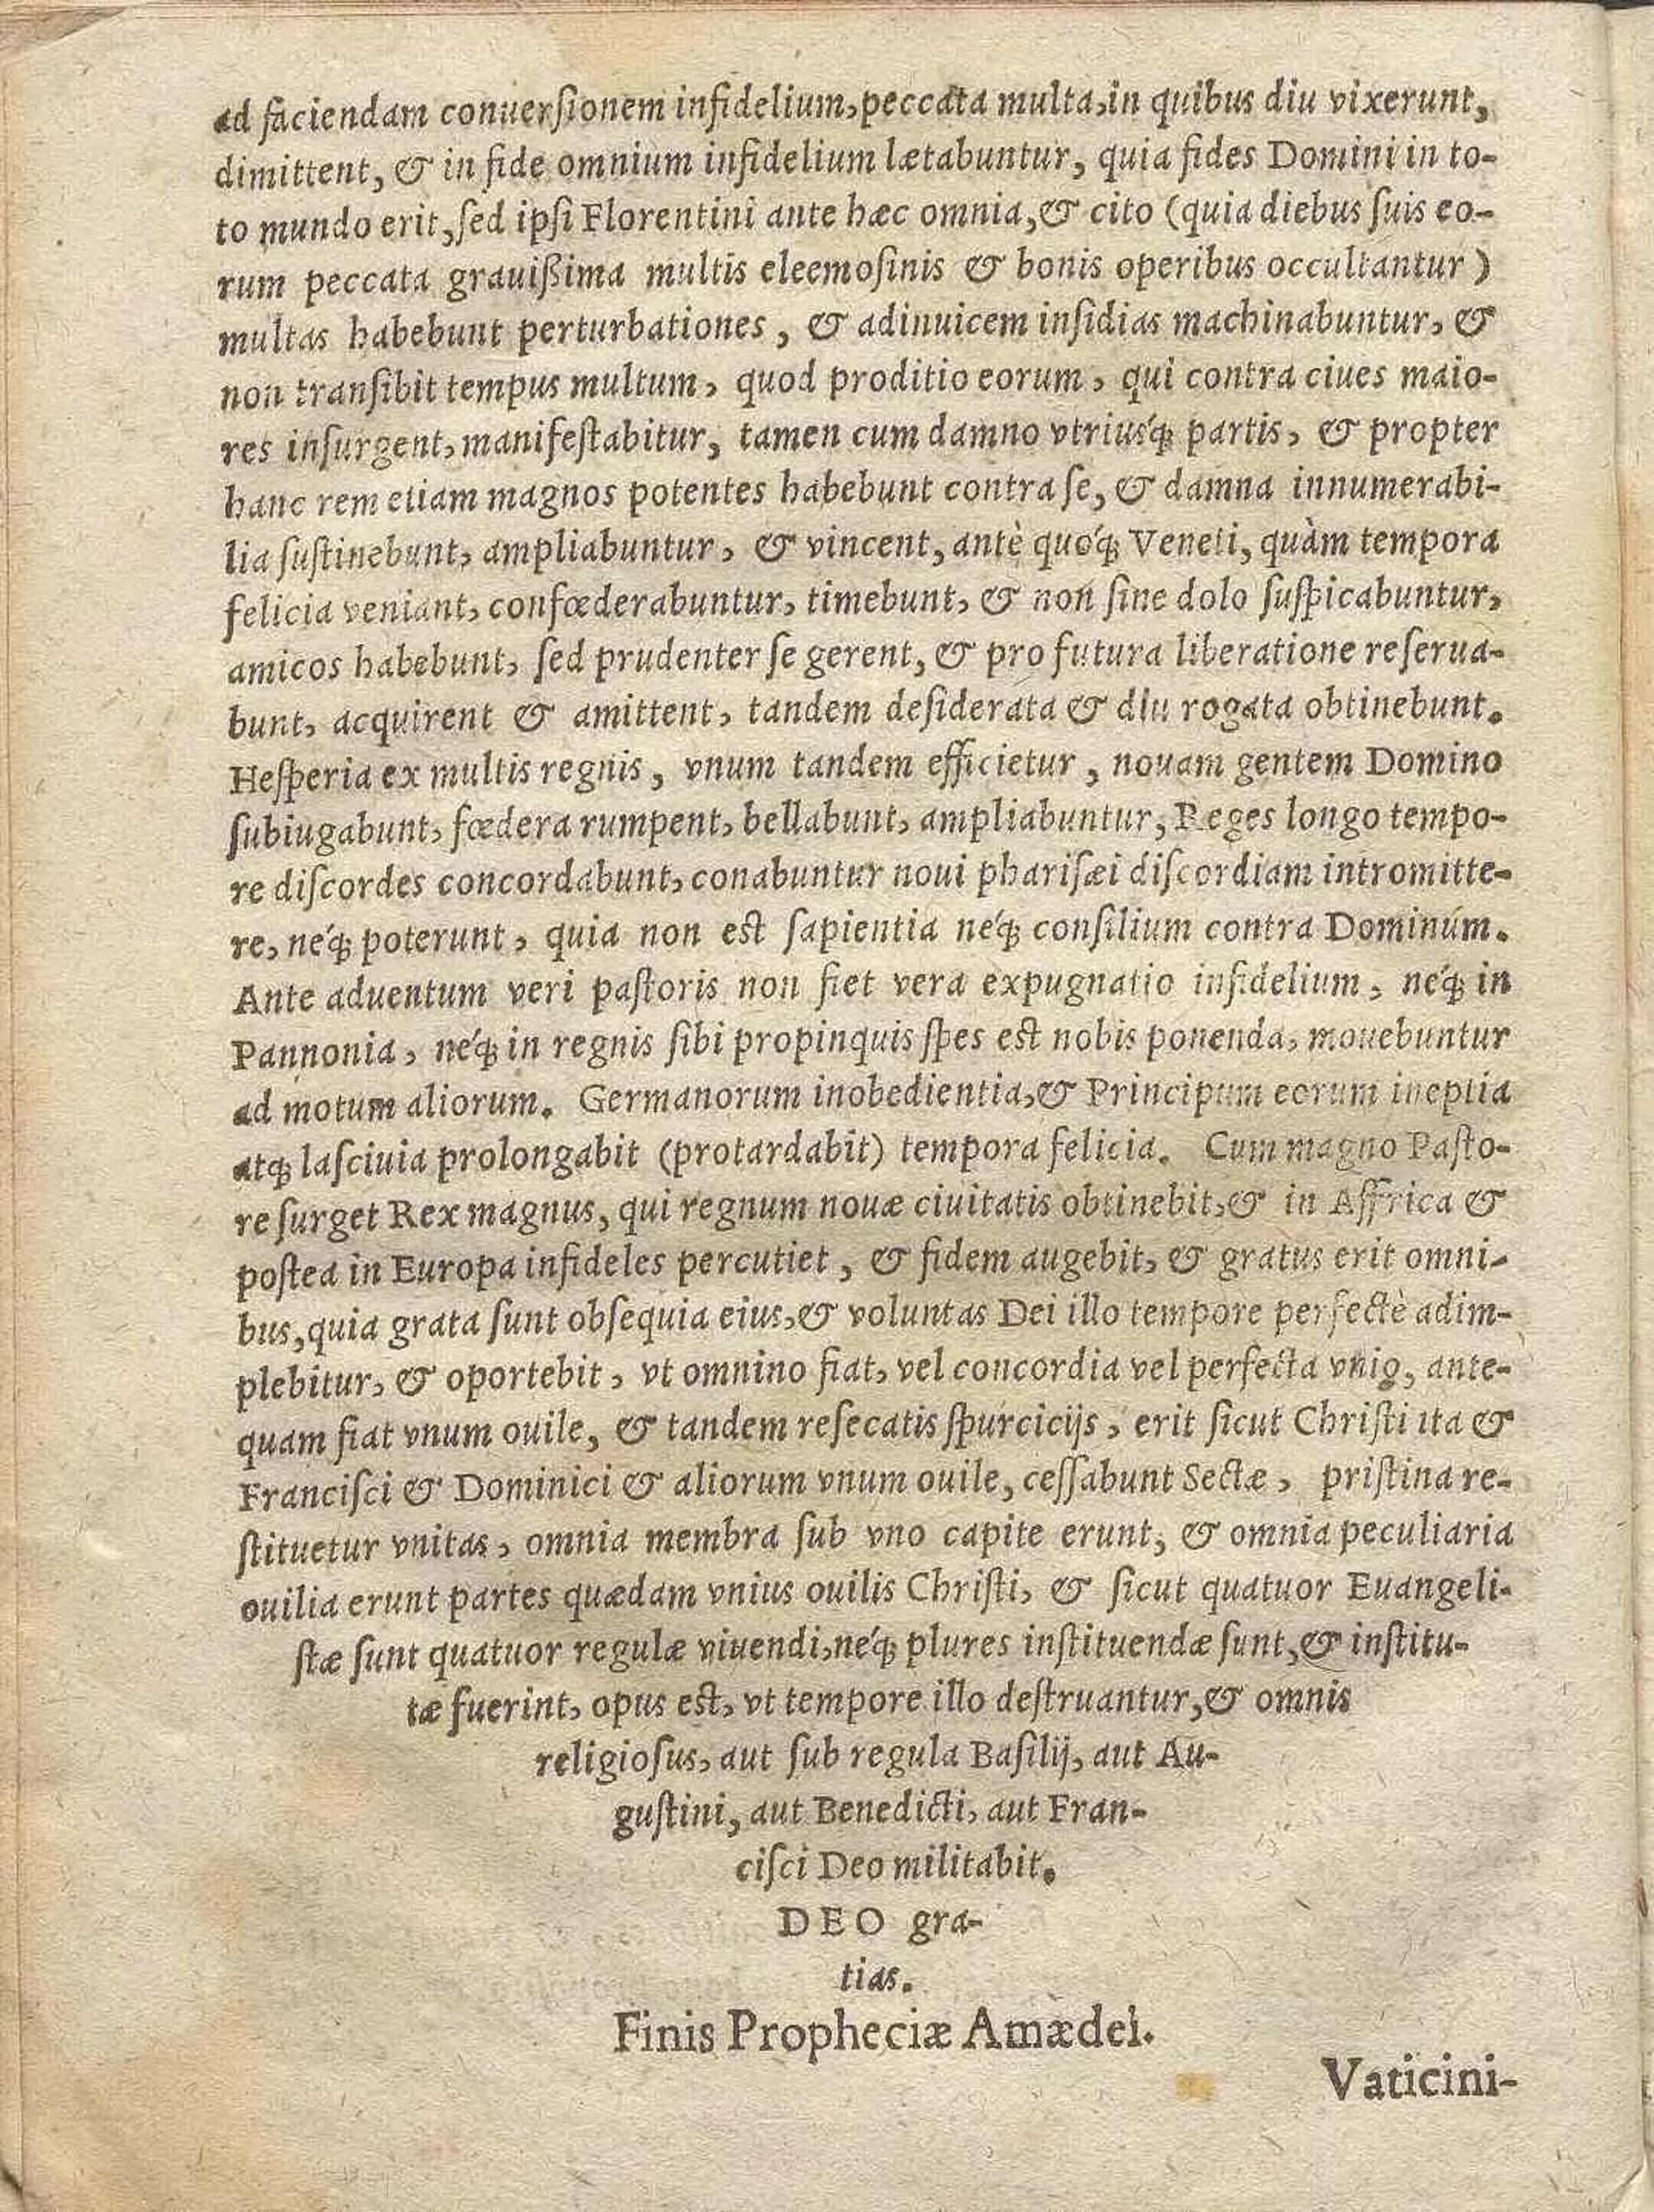 ad faciendam conuerſionem infidelium, peccata multa, in quibus diu vixerunt,
dimittent, & in fide omnium infidelium lætabuntur, quia fides Domini in to-
to mundo erit, ſed ipſi Florentini ante hæc omnia, & cito (quia diebus ſuis eo-
rum peccata grauißima multis eleemoſinis & bonis operibus occultantur)
multas habebunt perturbationes, & adinuicem inſidias machinabuntur, &
non tranſibit tempus multum, quod proditio eorum, qui contra ciues maio-
res inſurgent, manifeſtabitur, tamen cum damno vtriusq́; partis, & propter
hanc rem etiam magnos potentes habebunt contra ſe, & damna innumerabi-
lia ſuſtinebunt, ampliabuntur, & vincent, antè quoq́; Veneti, quàm tempora
felicia veniant, confœderabuntur, timebunt, & non ſine dolo ſuſpicabuntur,
amicos habebunt, ſed prudenter ſe gerent, & pro futura liberatione reſerua-
bunt, acquirent & amittent, tandem deſiderata & diu rogata obtinebunt.
Heſperia ex multis regnis, vnum tandem efficietur, nouam gentem Domino
ſubiugabunt, fœdera rumpent, bellabunt, ampliabuntur, Reges longo tempo-
re diſcordes concordabunt, conabuntur noui phariſæi diſcordiam intromitte-
re, neq́; poterunt, quia non est ſapientia neq́; conſilium contra Dominúm.
Ante aduentum veri paſtoris non fiet vera expugnatio infidelium, neq́; in
Pannonia, neq́; in regnis ſibi propinquis ſpes est nobis ponenda, mouebuntur
ad motum aliorum. Germanorum inobedientia, & Principum eorum ineptia
atq; laſciuia prolongabit (protardabit) tempora felicia. Cum magno Paſto-
re ſurget Rex magnus, qui regnum nouæ ciuitatis obtinebit, & in Affrica &
poſtea in Europa infideles percutiet, & fidem augebit, & gratus erit omni-
bus, quia grata ſunt obſequia eius, & voluntas Dei illo tempore perfectè adim-
plebitur, & oportebit, vt omnino fiat, vel concordia vel perfecta vnio, ante-
quam fiat vnum ouile, & tandem reſecatis ſpurcicijs, erit ſicut Chriſti ita &
Franciſci & Dominici & aliorum vnum ouile, ceſſabunt Sectæ, priſtina re-
ſtituetur vnitas, omnia membra ſub vno capite erunt, & omnia peculiaria
ouilia erunt partes quædam vnius ouilis Chriſti, & ſicut quatuor Euangeli-
ſtæ ſunt quatuor regulæ viuendi, neq́; plures inſtituendæ ſunt, & inſtitu-
tæ fuerint, opus est, vt tempore illo deſtruantur, & omnis
religioſus, aut ſub regula Baſilij, aut Au-
guſtini, aut Benedicti, aut Fran-
ciſci Deo militabit.
DEO gra-
tias.
Finis Propheciæ Amædei.
Vaticini-